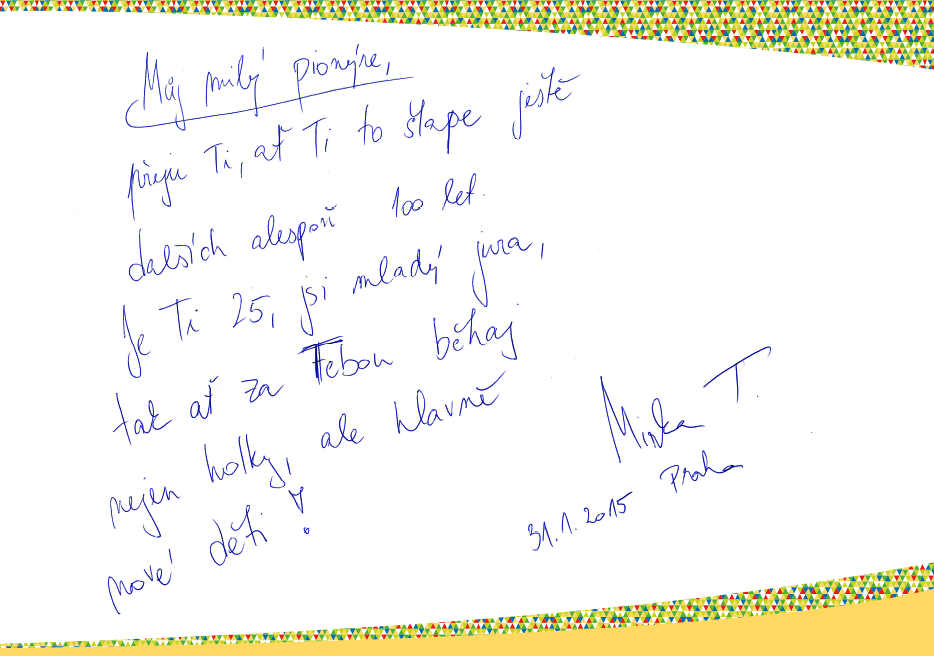 Můj milý pionýre,
přeju Ti, ať Ti to šlape ještě
dalších alespoň 100 let.
Je Ti 25, jsi mladý jura,
tak ať za Tebou běhaj
nejen holky, ale hlavně
nové děti!
Mirka T.
Praha
31.1.2015